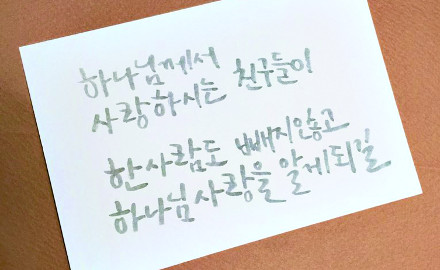 하나님께서
사랑하시는 친구들이
한사람도 빼지않고
하나님사랑을 알게되길